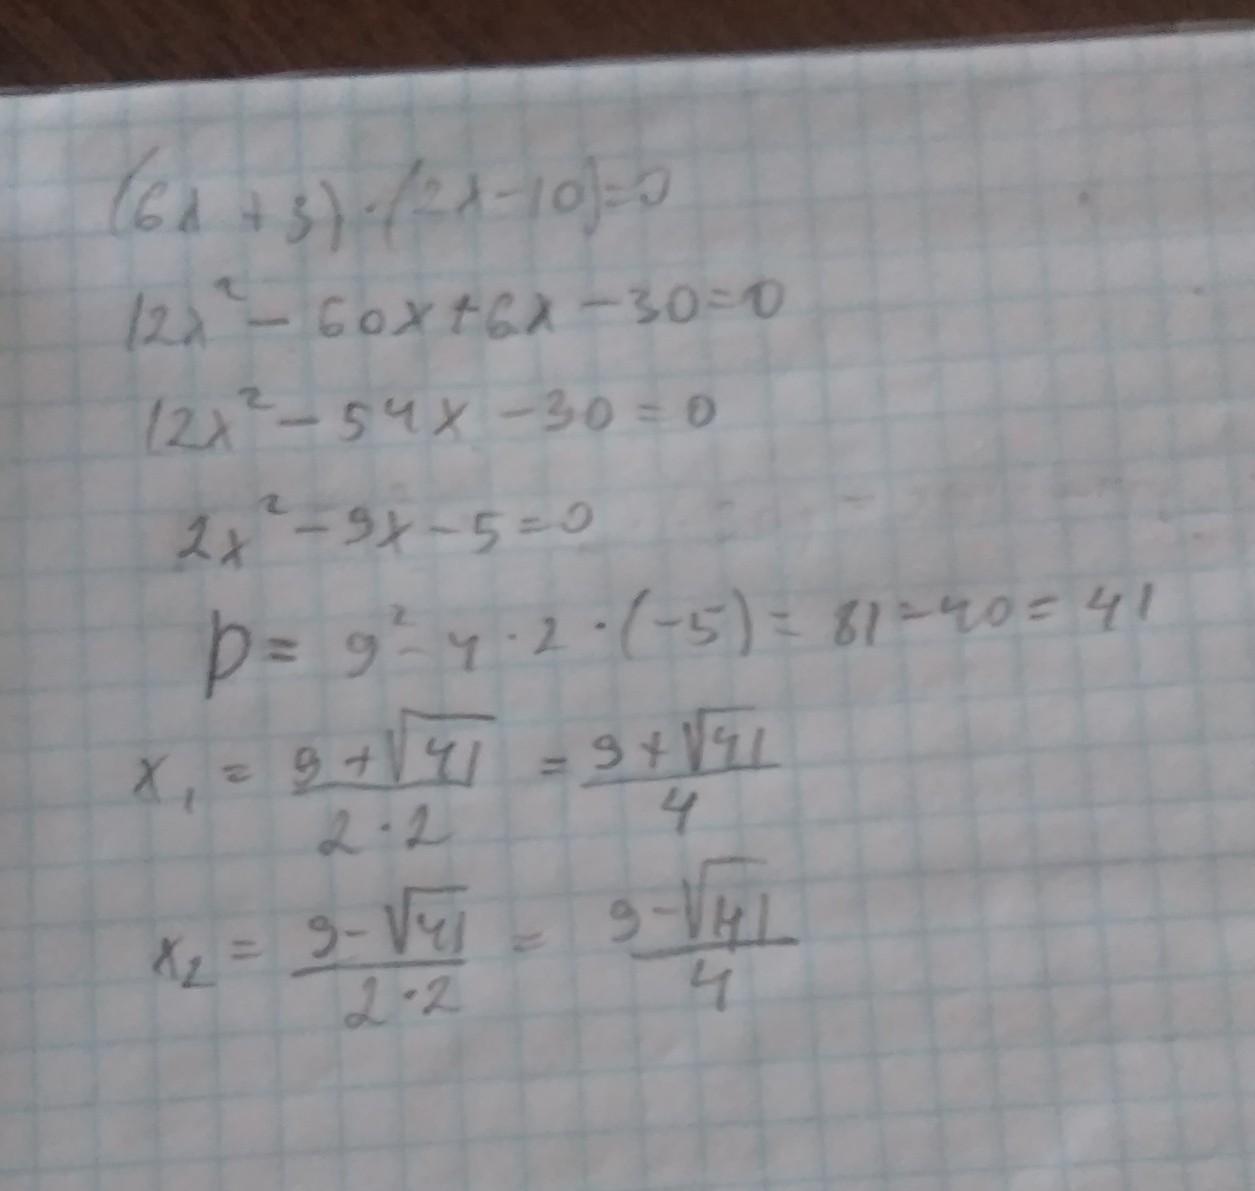 (6x + 3) · (2x - 10) = 0
12x² - 60x + 6x - 30 = 0
12x² - 54x - 30 = 0
2x² - 9x - 5 = 0
D = 9² - 4 · 2 · (-5) = 81 - 40 = 41
x₁ = (9 + √41)/(2 · 2) = (9 + √41)/4
x₂ = (9 - √41)/(2 · 2) = (9 - √41)/4